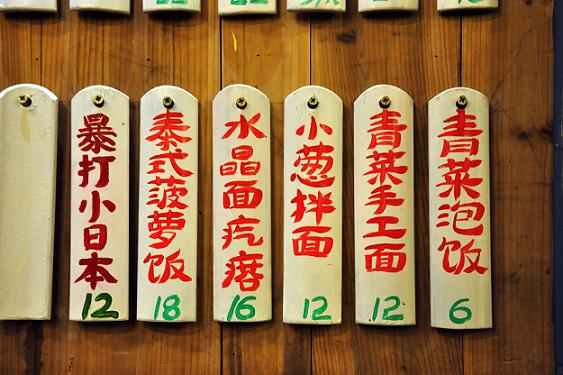 暴打小日本
12
泰式菠萝饭
18
水晶面疙瘩
16
小葱拌面
12
青菜手工面
12
青菜泡饭
6